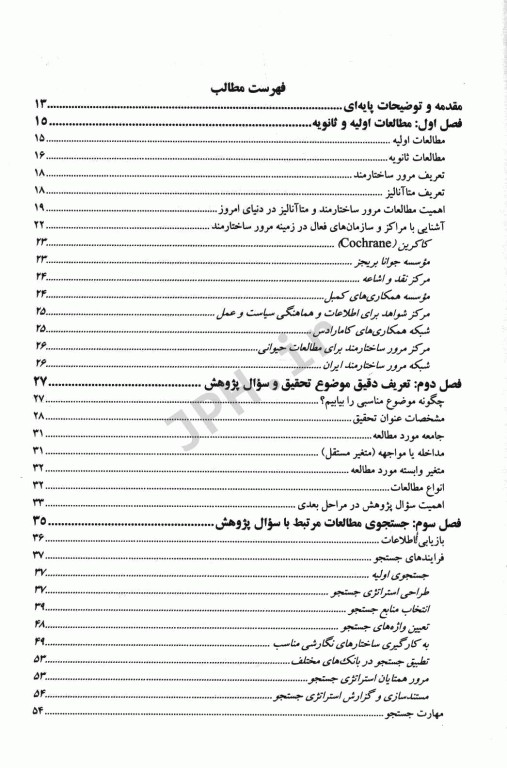 فهرست مطالب
مقدمه و توضیحات پایه‌ای ۱۳
فصل اول: مطالعات اولیه و ثانویه ۱۵
مطالعات اولیه ۱۵
مطالعات ثانویه ۱۶
تعریف مرور ساختارمند ۱۸
تعریف متاآنالیز ۱۸
اهمیت مطالعات مرور ساختارمند و متاآنالیز در دنیای امروز ۱۹
آشنایی با مراکز و سازمان‌های فعال در زمینه مرور ساختارمند ۲۲
کاکرین (Cochrane) ۲۳
مؤسسه جوانا بریجز ۲۳
مرکز نقد و اشاعه ۲۴
مؤسسه همکاری‌های کمبل ۲۴
مرکز شواهد برای اطلاعات و هماهنگی سیاست و عمل ۲۵
شبکه همکاری‌های کامارادس ۲۵
مرکز مرور ساختارمند برای مطالعات حیوانی ۲۶
شبکه مرور ساختارمند ایران ۲۶
فصل دوم: تعریف دقیق موضوع تحقیق و سؤال پژوهش ۲۷
چگونه موضوع مناسبی را بیابیم؟ ۲۷
مشخصات عنوان تحقیق ۲۸
جامعه مورد مطالعه ۳۱
مداخله یا مواجهه (متغیر مستقل) ۳۱
متغیر وابسته مورد مطالعه ۳۲
انواع مطالعات ۳۲
اهمیت سؤال پژوهش در مراحل بعدی ۳۳
فصل سوم: جستجوی مطالعات مرتبط با سؤال پژوهش ۳۵
بازیابی اطلاعات ۳۶
فرایندهای جستجو ۳۷
جستجوی اولیه ۳۷
طراحی استراتژی جستجو ۳۷
انتخاب منابع جستجو ۳۹
تعیین واژه‌های جستجو ۴۸
به کارگیری ساختارهای نگارشی مناسب ۴۹
تطبیق جستجو در بانک‌های مختلف ۵۳
مرور همتایان استراتژی جستجو ۵۳
مستندسازی و گزارش استراتژی جستجو ۵۴
مهارت جستجو ۵۴
JPH.ir